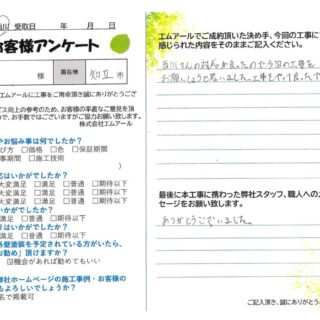 受取日 年 月 日
お客様アンケート
様 居住地 知立市
エムアールに工事をご用命頂き誠にありがとうござ
ビス向上の参考のため、お客様の率直なご意見を頂
ので、お手数ではございますがご協力お願い致します。
株式会社エムアール
やお悩み事は何でしたか?
び方 □価格 □色 □保証期間
事期間 □施工技術
応はいかがでしたか?
大変満足 □満足 □普通 □期待以下
大変満足 □満足 □普通 □期待以下
いかがでしたか?
大変満足 □満足 □普通 □期待以下
りはいかがでしたか?
大変満足 □満足 □普通 □期待以下
外壁塗装を予定されている方がいたら、
お勧め」頂けますか?
☑機会があれば勧めてもいい
弊社ホームページの施工事例・お客様の
もよろしいでしょうか?
名で掲載可
エムアールでご成約頂いた決め手、今回の工事に
感じられた内容をそのままご記入ください。
西川さんの対応が良かったので今回の工事を
お願いしようと思いました。
最後に本工事に携わった弊社スタッフ、職人への
セージをお願い致します。
ありがとうございました。
ご記入頂き、誠にありがとう